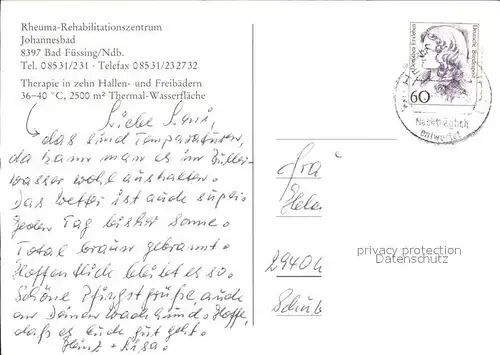 Rheuma-Rehabilitationszentrum
Johannesbad
8397 Bad Füssing/Ndb.
Tel. 08531/231 · Telefax 08531/232732
Therapie in zehn Hallen- und Freibädern
36–40 °C, 2500 m² Thermal-Wasserfläche
Liebe
das sind Temperaturen,
da kann man es im
wasser wohl aushalten.
Das Wetter ist auch super.
Jeden Tag bisher Sonne.
Total braun gebrannt.
Hoffentlich bleibt es so.
Schöne Pfingstgrüße, auch
an Deinen Hoffe,
daß es Euch gut geht.
Heinz + Lisa.
Deutsche Bundespost
60
Nachträglich
entwertet
Frau
Hele
2940
Schub
privacy protection
Datenschutz